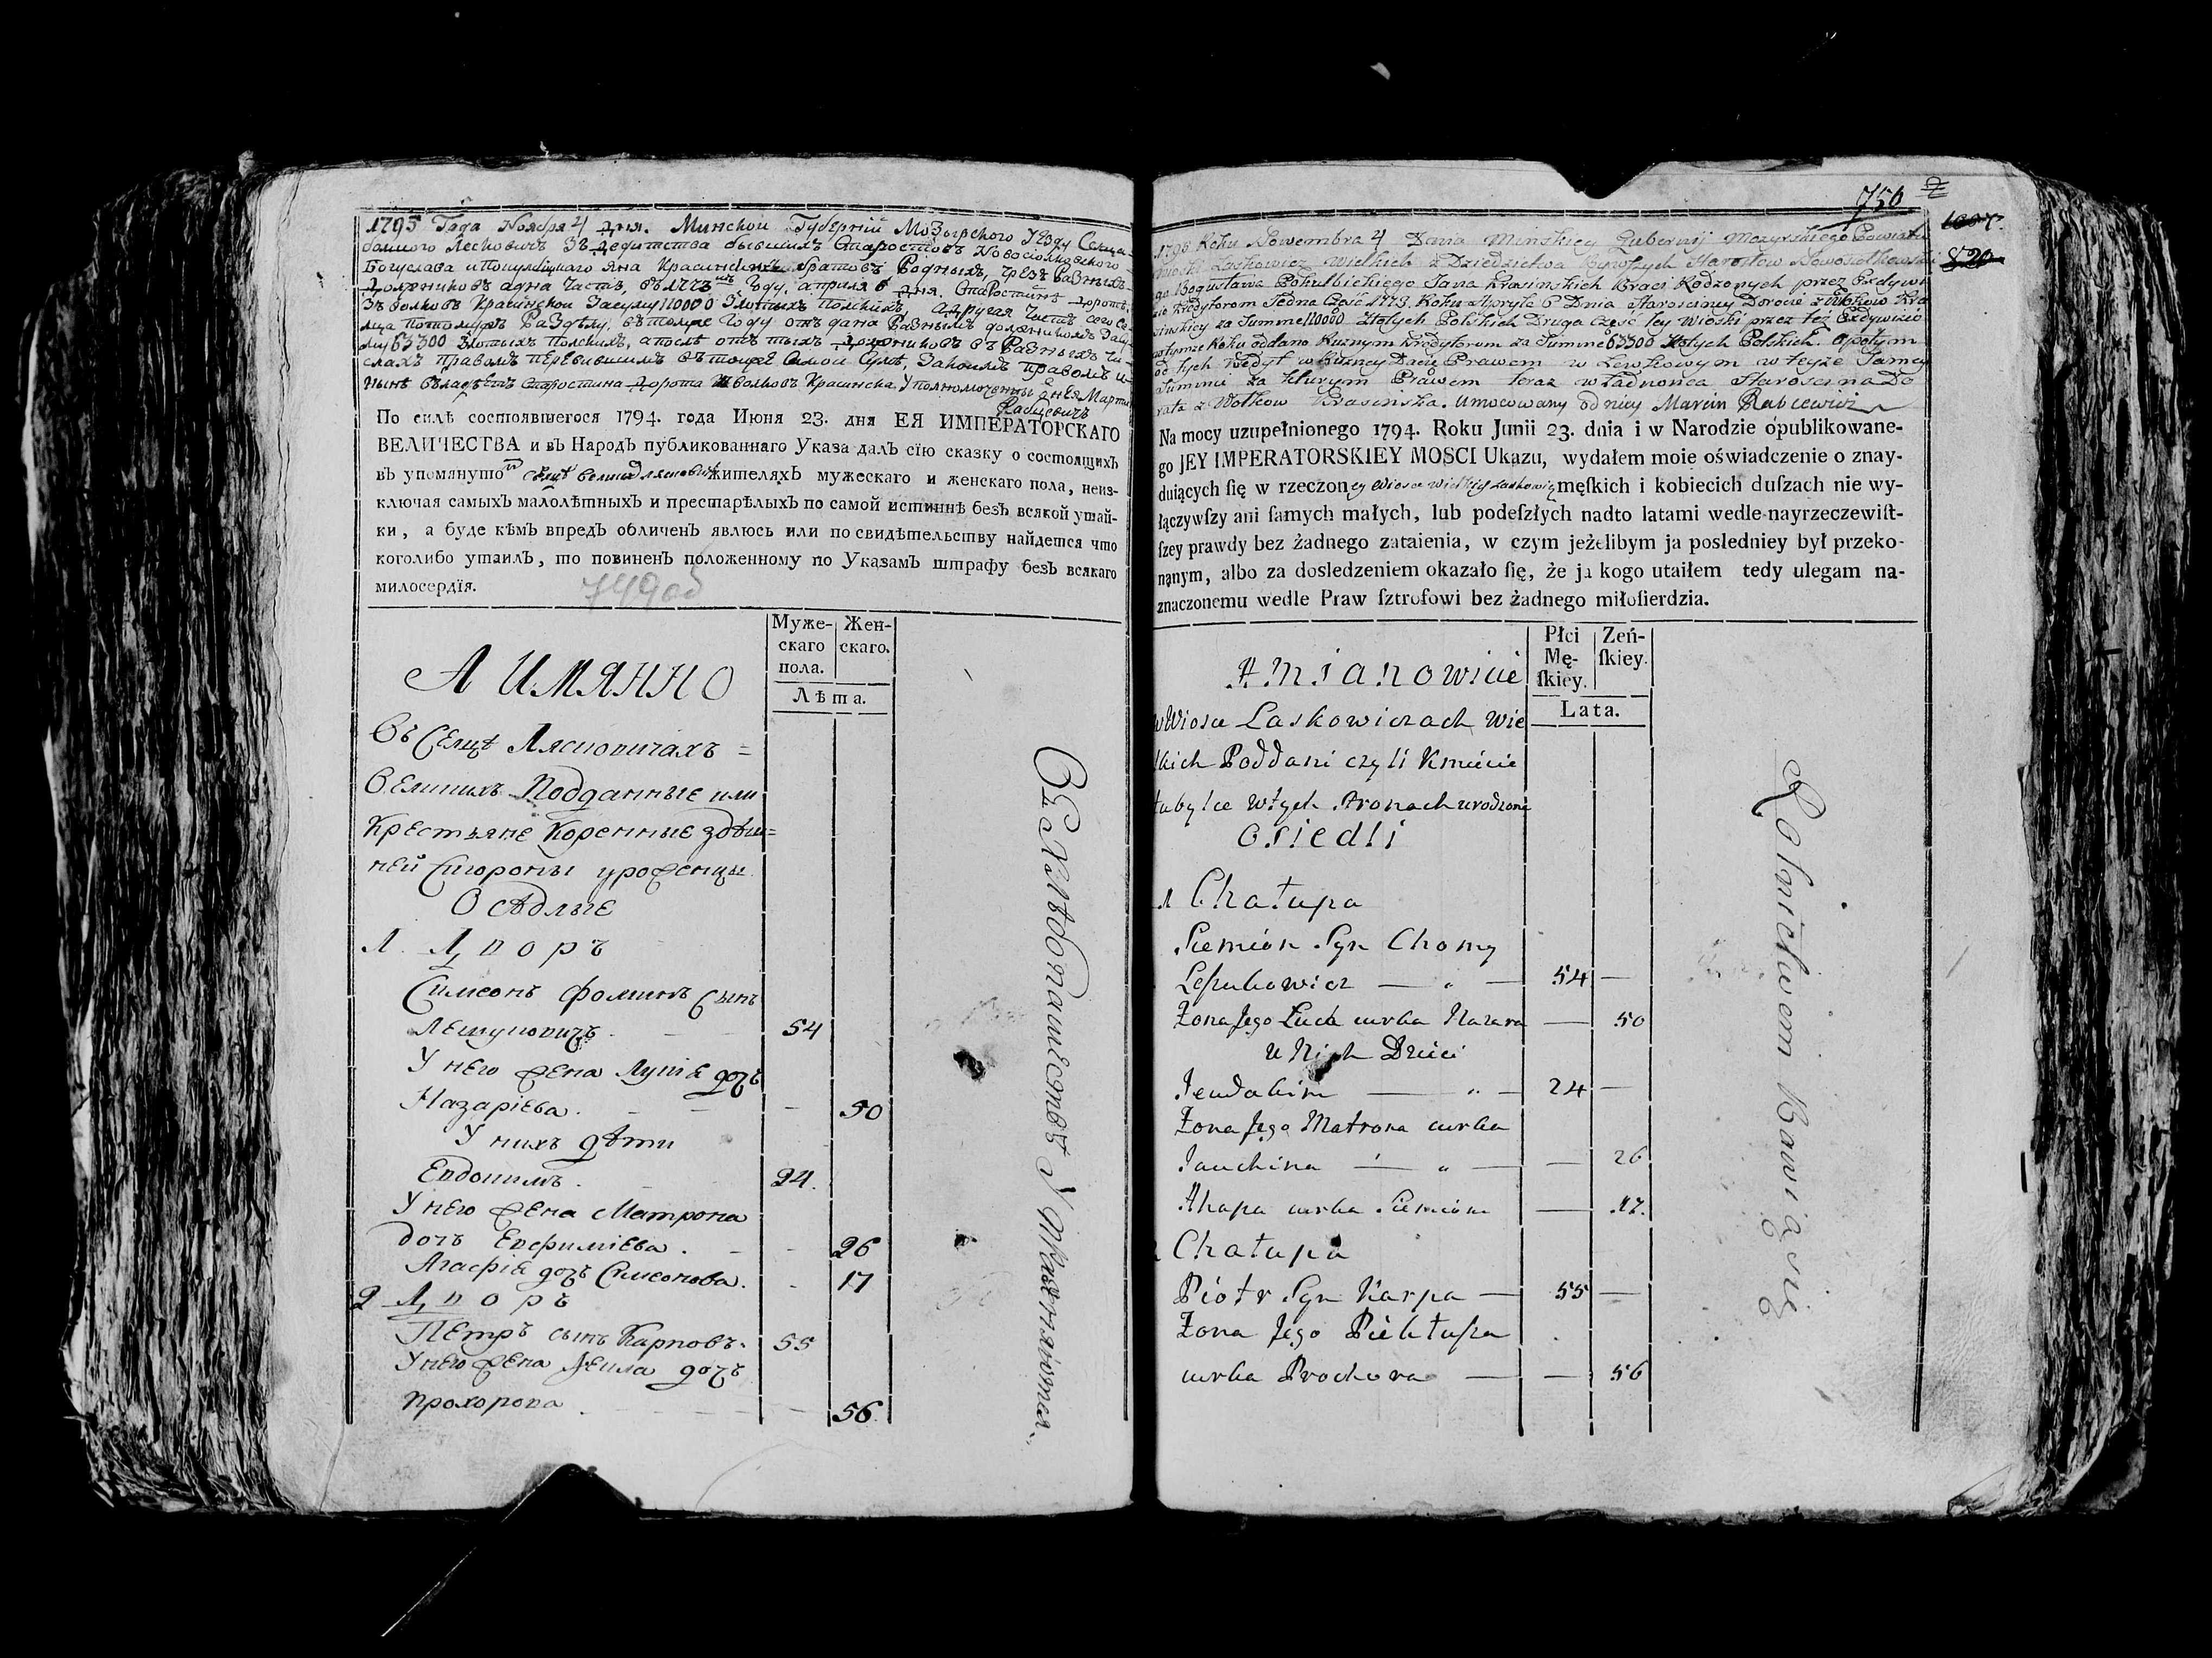 1795 Года Ноября 4 дня. Минской Губерніи Мозырского Уезду Селца
болшого Лесковичъ Зъ дедитства бывшихъ Старостовъ Новоселковского
Богуслава и Яна Красинскихъ братовъ Родныхъ, чрезъ Разныхъ
должниковъ адна часть, въ 1773 мъ Году, априля 6 дня. Старостине Дороте
Зъ Волковъ Красинской Засуму 110000 Злотыхъ Полскихъ, а другая часть сего се
лца потомужъ Разделу, втомже Году отъ дана Разнымъ должникомъ Засу
му 63300 Злотыхъ Полскихъ, апосле отъ тыхъ должниковъ въ Разныхъ чи
слахъ правомъ въ тойже Самой Суме, Закоимъ правомъ и
ныне Старостина Дорота Зволковъ Красинска. Уполномоченны Марти
Рабцевичъ
По силѣ состоявшегося 1794. года Июня 23. дня ЕЯ ИМПЕРАТОРСКАГО
ВЕЛИЧЕСТВА и въ Народъ публикованнаго Указа далъ сїю сказку о состоящихъ
въ упомянутомъ жителяхъ мужескаго и женскаго пола, неиз-
ключая самыхъ малолѣтныхъ и престарѣлыхъ по самой истиннѣ безъ всякой утай-
ки, а буде кѣмъ впредъ обличенъ явлюсь или по свидѣтельству найдется что
коголибо утаилъ, то повиненъ положенному по Указамъ штрафу безъ всякаго
милосердїя.
749об
Муже-
скаго
пола.
Жен-
скаго.
Лѣта.
А ИМЯННО
Въ Селцѣ Лясковичахъ =
Великихъ Подданные или
Крестьяне Коренные здѣш=
ней Стороны уроженцы
Осѣдлые
1. Дворъ
Симеонъ Фоминъ Сынъ
Лешуковичъ. 54
У него жена Луція дочь
Назаріева. - 50
У нихъ дѣти
Евдокимъ. 24.
У него жена Матрона
дочь Евфиміева. - 26
Агафія дочь Симеонова. - 17
2 Дворъ
Петръ сынъ Карповъ. 55
У него жена Фекла дочь
Прохорова 56.
Земледѣлиемъ
750
1007.
820
1795 Roku Nowembra 4 Dnia Minskiey Gubernij Mozyrskiego Powiatu
Wioski Laskowicz Wielkich z Dziedzictwa Bywszych Starostow Nowosiołkowskie
go Bogusława Jana Krasinskich Braci Rodzonych przez Exdywi
zie Kredytorom Jedna Część 1773. Roku Apryla 6 Dnia Starosciney Dorocie z Wołkow Kra
sinskiey za Summe 110000 Złotych Polskich Druga Część tey Wioski przez też Exdywizio
wtymże Roku oddano Ruznym Kredytorom za Summe 63300 Złotych Polskich. apotym
od tych w Ruzney Dacie Prawem w Lewkowym w teyże Samey
Summie za kturym Prawem teraz władnonca Starościna Do
rota z Wołkow Krasinska. Umocowany od niey Marcin Rabcewicz
Na mocy uzupełnionego 1794. Roku Junii 23. dnia i w Narodzie opublikowane-
go JEY IMPERATORSKIEY MOSCI Ukazu, wydałem moie oświadczenie o znay-
duiących ſię w rzeczoney Wiosce Wielkich Laskowicz męſkich i kobiecich duſzach nie wy-
łączywſzy ani ſamych małych, lub podeſzłych nadto latami wedle nayrzeczewiſt-
ſzey prawdy bez żadnego zataienia, w czym jeżelibym ja posledniey był przeko-
nąnym, albo za dosledzeniem okazało ſię, że ja kogo utaiłem tedy ulegam na-
znaczonemu wedle Praw ſztrofowi bez żadnego miłoſierdzia.
Płci
Mę-
ſkiey.
Zeń-
ſkiey.
Lata.
A Mianowicie
w Wiosce Laskowiczach Wie
lkich Poddani czyli Kmiecie
tubylce wtych stronach urodzone
Osiedli
1 Chałupa
Siemion Syn Chomy
Leszukowicz — „ — 54 —
Żona Jego Łucia curka Nazara — 50
u Nich Dzieci
Jeudakim — „ — 24 —
Żona Jego Matrona curka
Jauchima — „ — — 26
Ahapa curka Siemiona — 17.
2 Chałupa
Piotr Syn Karpa — 55 —
Żona Jego Piekłusza
curka Prochora — — 56
Rolnictwem Bawią się